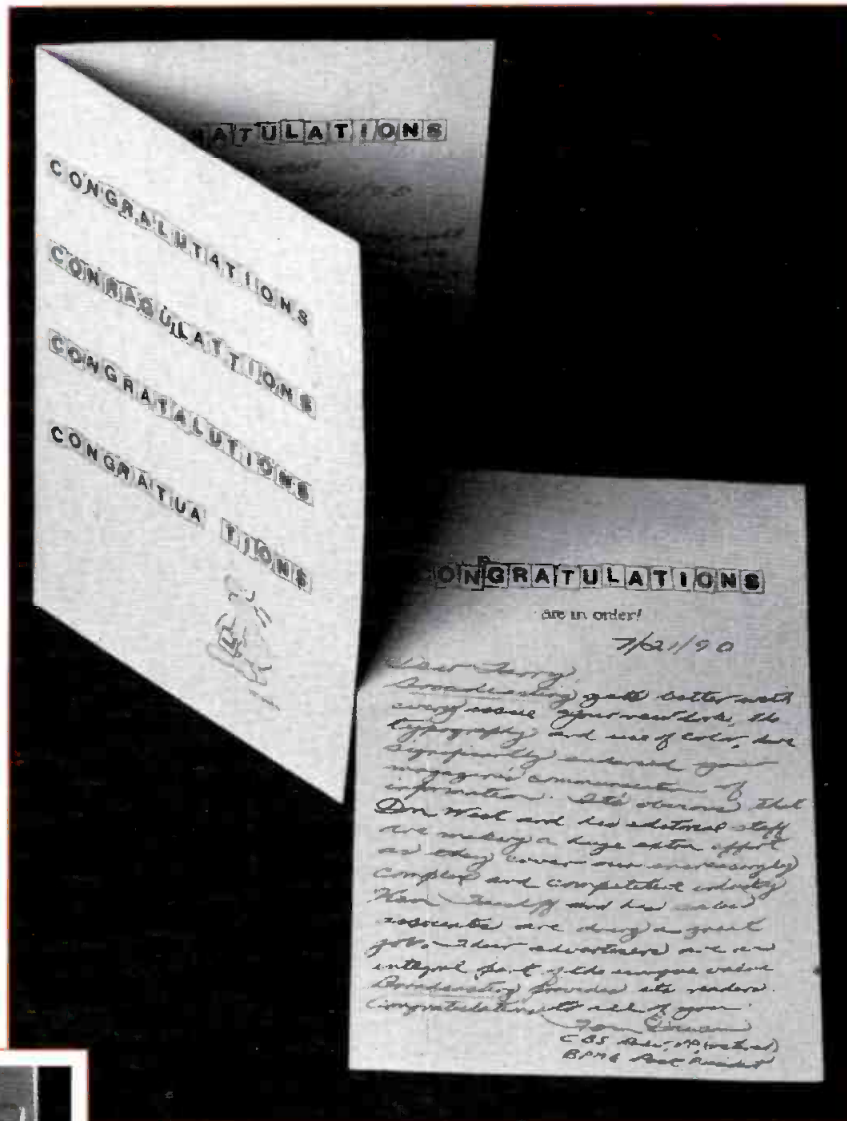 ATULATIONS
CONGRALUTATIONS
CONRAGULATTIONS
CONGRATALUTIONS
CONGRATUA TIONS
CONGRATULATIONS
are in order!
7/21/90
Dear Terry,
Broadcasting gets better with
every issue. Your new look, the
typography and use of color, have
significantly enhanced your
magazine's communication of
information. It's obvious that
Don West and his editorial staff
are making a huge extra effort
as they cover our increasingly
complex and competitive industry
and his sales
associates are doing a great
job. Their advertisers are an
integral part of the unique value
Broadcasting provides its readers.
Congratulations to all of you.
Tom
CBS
BPME Past President